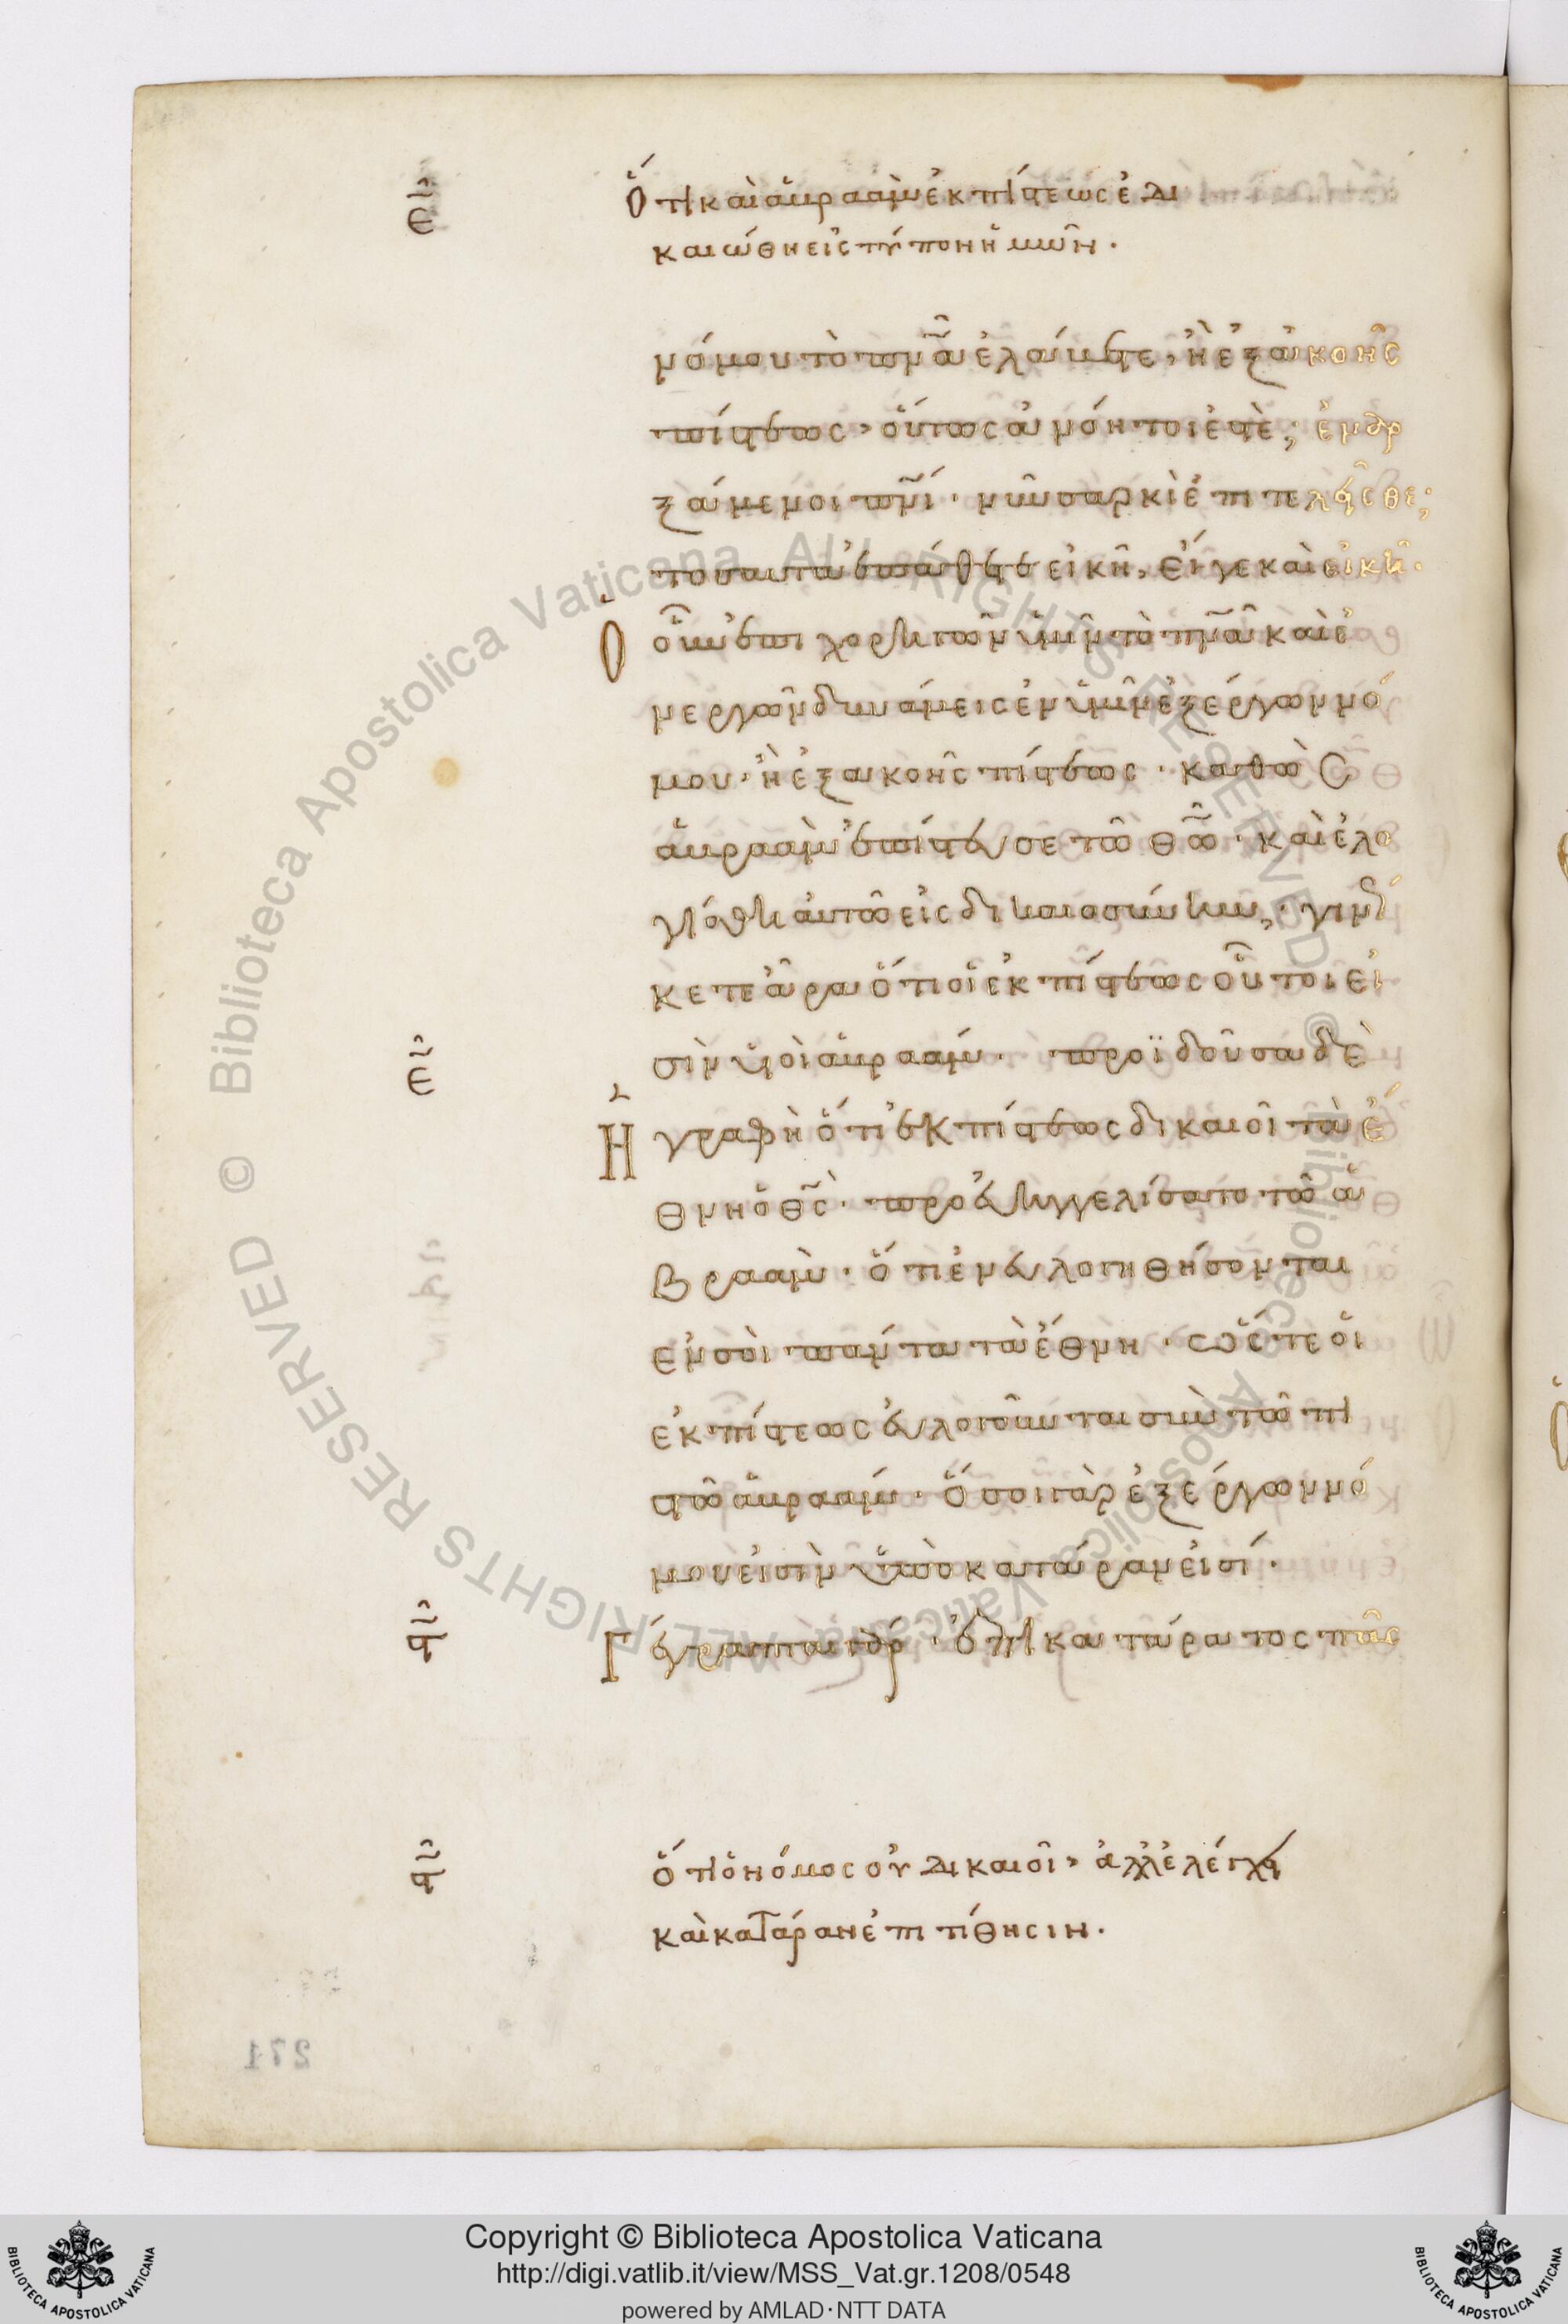 ε
Ὅτι καὶ ἁβραὰμ ἐκ πίστεως ἐδι
καιώθη εἰς τύπον ἡμῶν.
νόμου τὸ πν̅α̅ ἐλάβετε, ἢ ἐξ ἀκοῆς
πίστεως, οὕτως ἀνόητοί ἐστε; ἐναρ
ξάμενοι πν̅ι̅· νῦν σαρκὶ ἐπιτελεῖσθε;
τοσαῦτα ἐπάθετε εἰκῆ, εἴγε καὶ εἰκῆ.
Ὁ οὖν ἐπιχορηγῶν ὑμῖν τὸ πν̅α̅ καὶ ἐ
νεργῶν δυνάμεις ἐν ὑμῖν ἐξ ἔργων νό
μου· ἢ ἐξ ἀκοῆς πίστεως· καθὼς
ἁβραὰμ ἐπίστευσε τῶ θ̅ω̅· καὶ ἐλο
γίσθη αὐτῶ εἰς δικαιοσύνην, γινώ
σκετε ἄρα ὅτι οἱ ἐκ πίστεως οὗτοι εἰ
σὶν υἱοὶ ἁβραάμ· προϊδοῦσα δὲ
ε
Ἡ γραφὴ ὅτι ἐκ πίστεως δικαιοῖ τὰ ἔ
θνη ὁ θ̅ς̅· προευηγγελίσατο τῶ ἁ
βραὰμ· ὅτι ἐνευλογηθήσονται
ἐν σοὶ πάντα τὰ ἔθνη· ὥστε οἱ
ἐκ πίστεως εὐλογοῦνται σὺν τῶ πι
στῶ ἁβραάμ· Ὅσοι γὰρ ἐξ ἔργων νό
μου εἰσὶν ὑπὸ κατάραν εἰσί·
Γέγραπται γάρ· ὅτι ἐπικατάρατος πᾶς
Ὅτι ὁ νόμος οὐ δικαιοῖ, ἀλλ' ἐλέγχει
καὶ κατάραν ἐπιτίθησιν.
271
Copyright © Biblioteca Apostolica Vaticana
http://digi.vatlib.it/view/MSS_Vat.gr.1208/0548
powered by AMLAD·NTT DATA
BIBLIOTECA APOSTOLICA VATICANA
BIBLIOTECA APOSTOLICA VATICANA
© Biblioteca Apostolica Vaticana ALL RIGHTS RESERVED
© Biblioteca Apostolica Vaticana ALL RIGHTS RESERVED